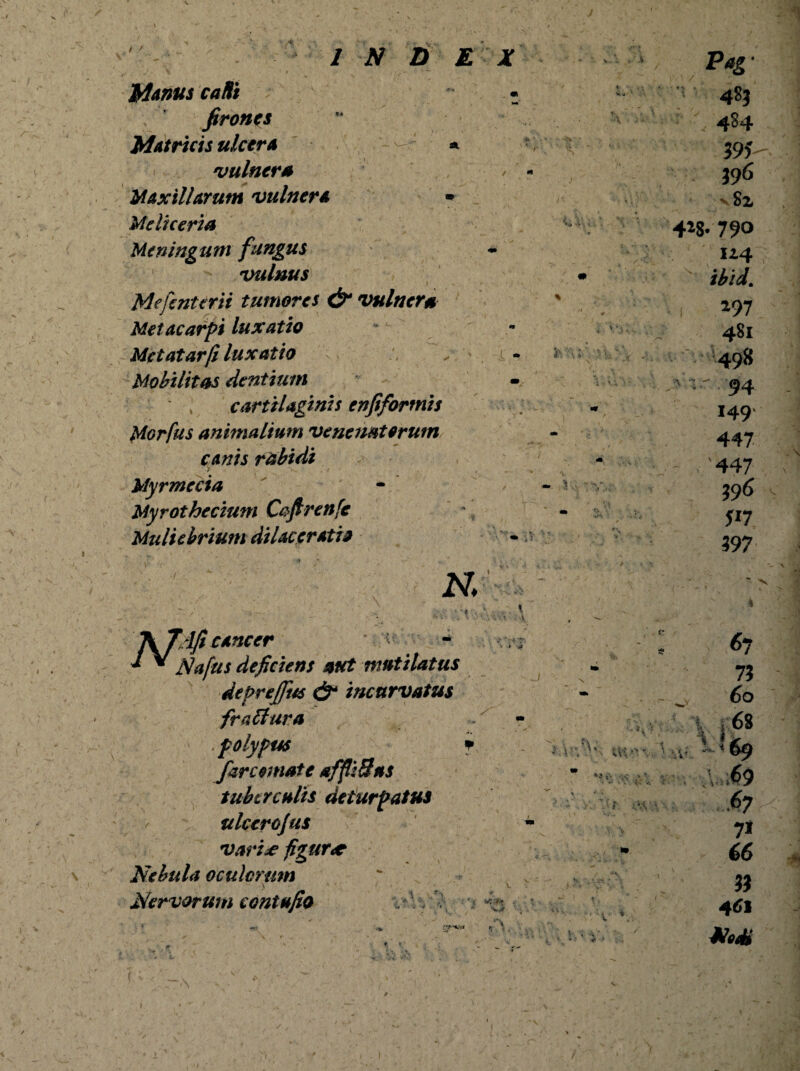 INDEX Pag.
Manus casûs - 483
sirones - 484
Matricis ulcera - 395
vulnera - 396
Maxillarum vulnera - 82
Meliceria 428. 790
Meningum fungus - 124
vulnus - ibid.
Mesenterii tumores & vulnera 297
Metacarpi luxatio - 481
Metatarsi luxatio - 498
Mobilitas dentium - 94
cartilaginis ensiformis - 149
Morsus animalium venenatorum - 447
canis rabidi - 447
Myrmecia - - 396
Myrothecium Castrense - 517
Muliebrium dilaceratio - 397
N.
NAsi cancer - 67
Nasus deficiens aut mutilatus - 73
depressus & incurvatus - 60
fractura - 68
polypus - 69
sarcomate afflictus - 69
tuberculis deturpatus .67
ulcerosus - 71
variæ figuræ - 66
Nebula oculorum 33
Nervorum contusio 461
Nodi